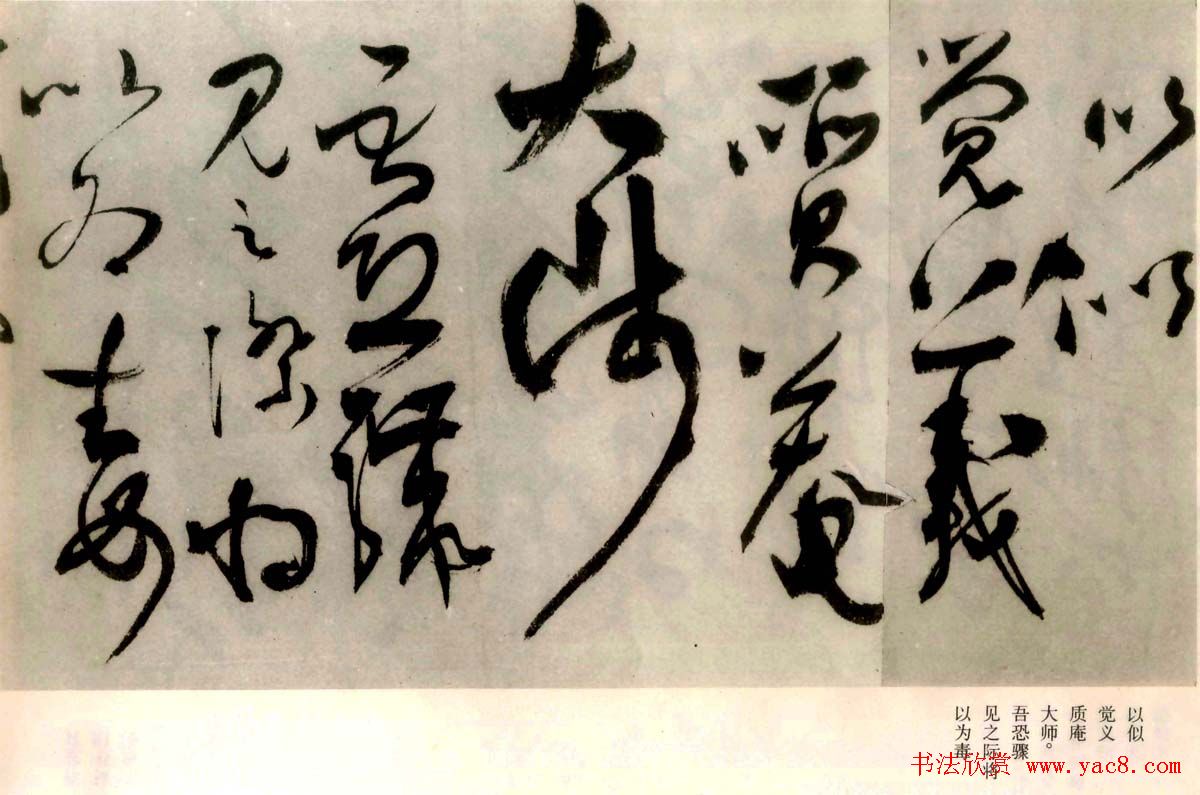 以似
觉义
质庵
大师
吾恐骤
见之际将
以为毒
以似
觉义
质庵
大师。
吾恐骤
见之际将
以为毒
书法欣赏 www.yac8.com